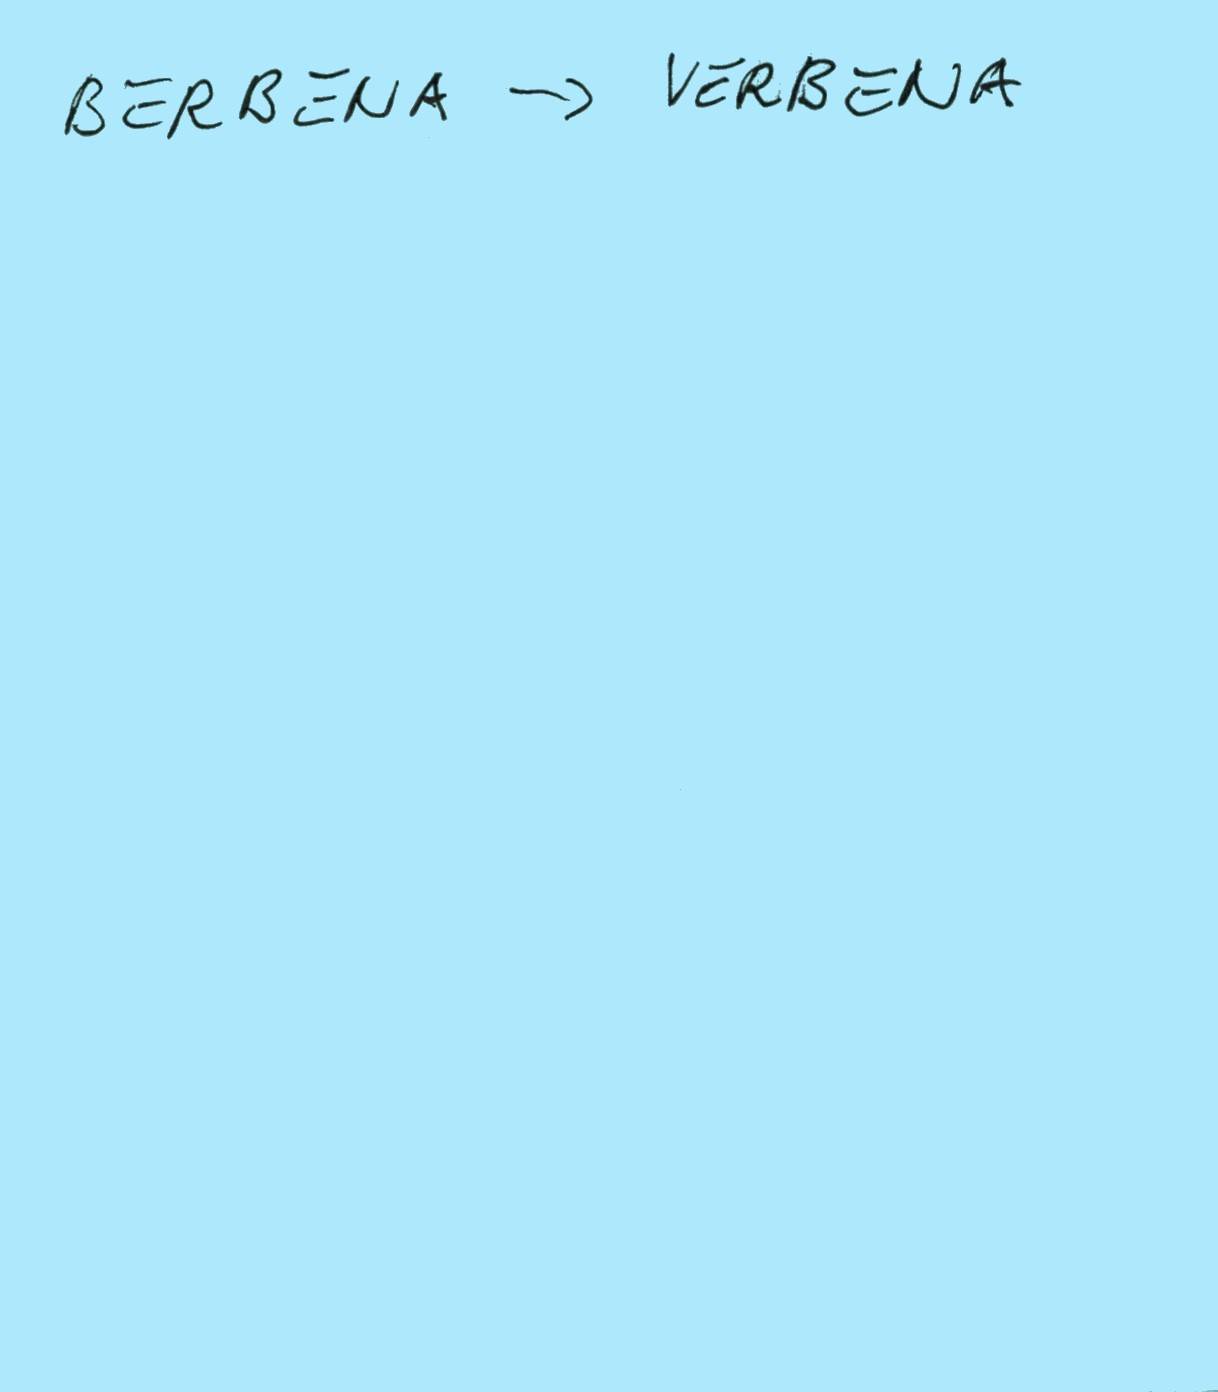 BERBENA → VERBENA